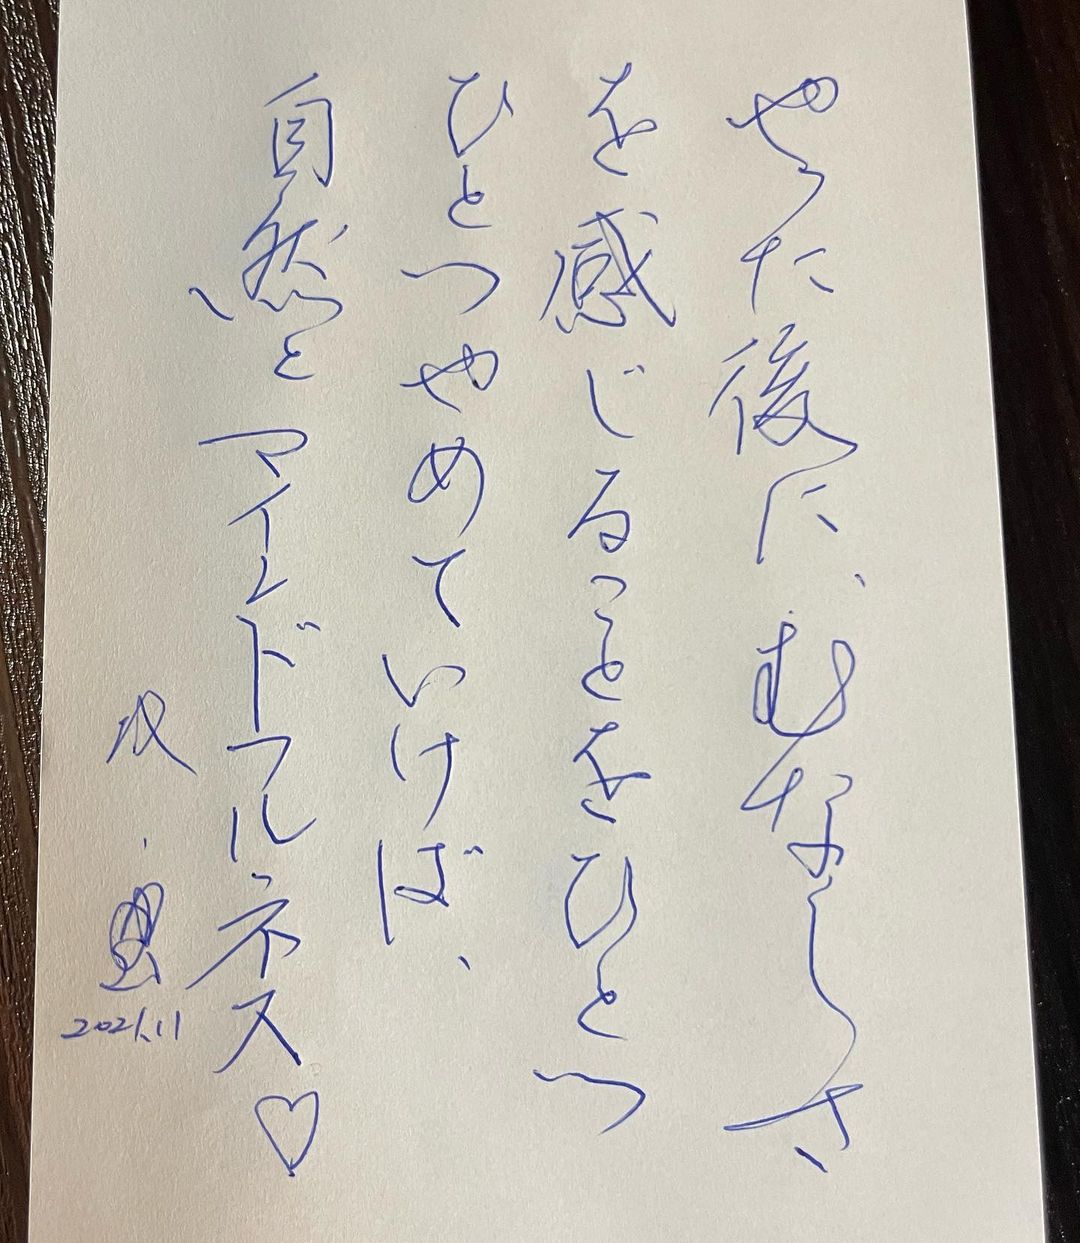 やった後に、むなしさ
を感じることをひとつ
ひとつやめていけば、
自然とマインドフルネス♡
2021.11